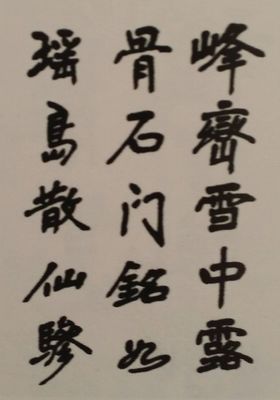 峰峦雪中露
骨石门銘如
瑶島散仙驂